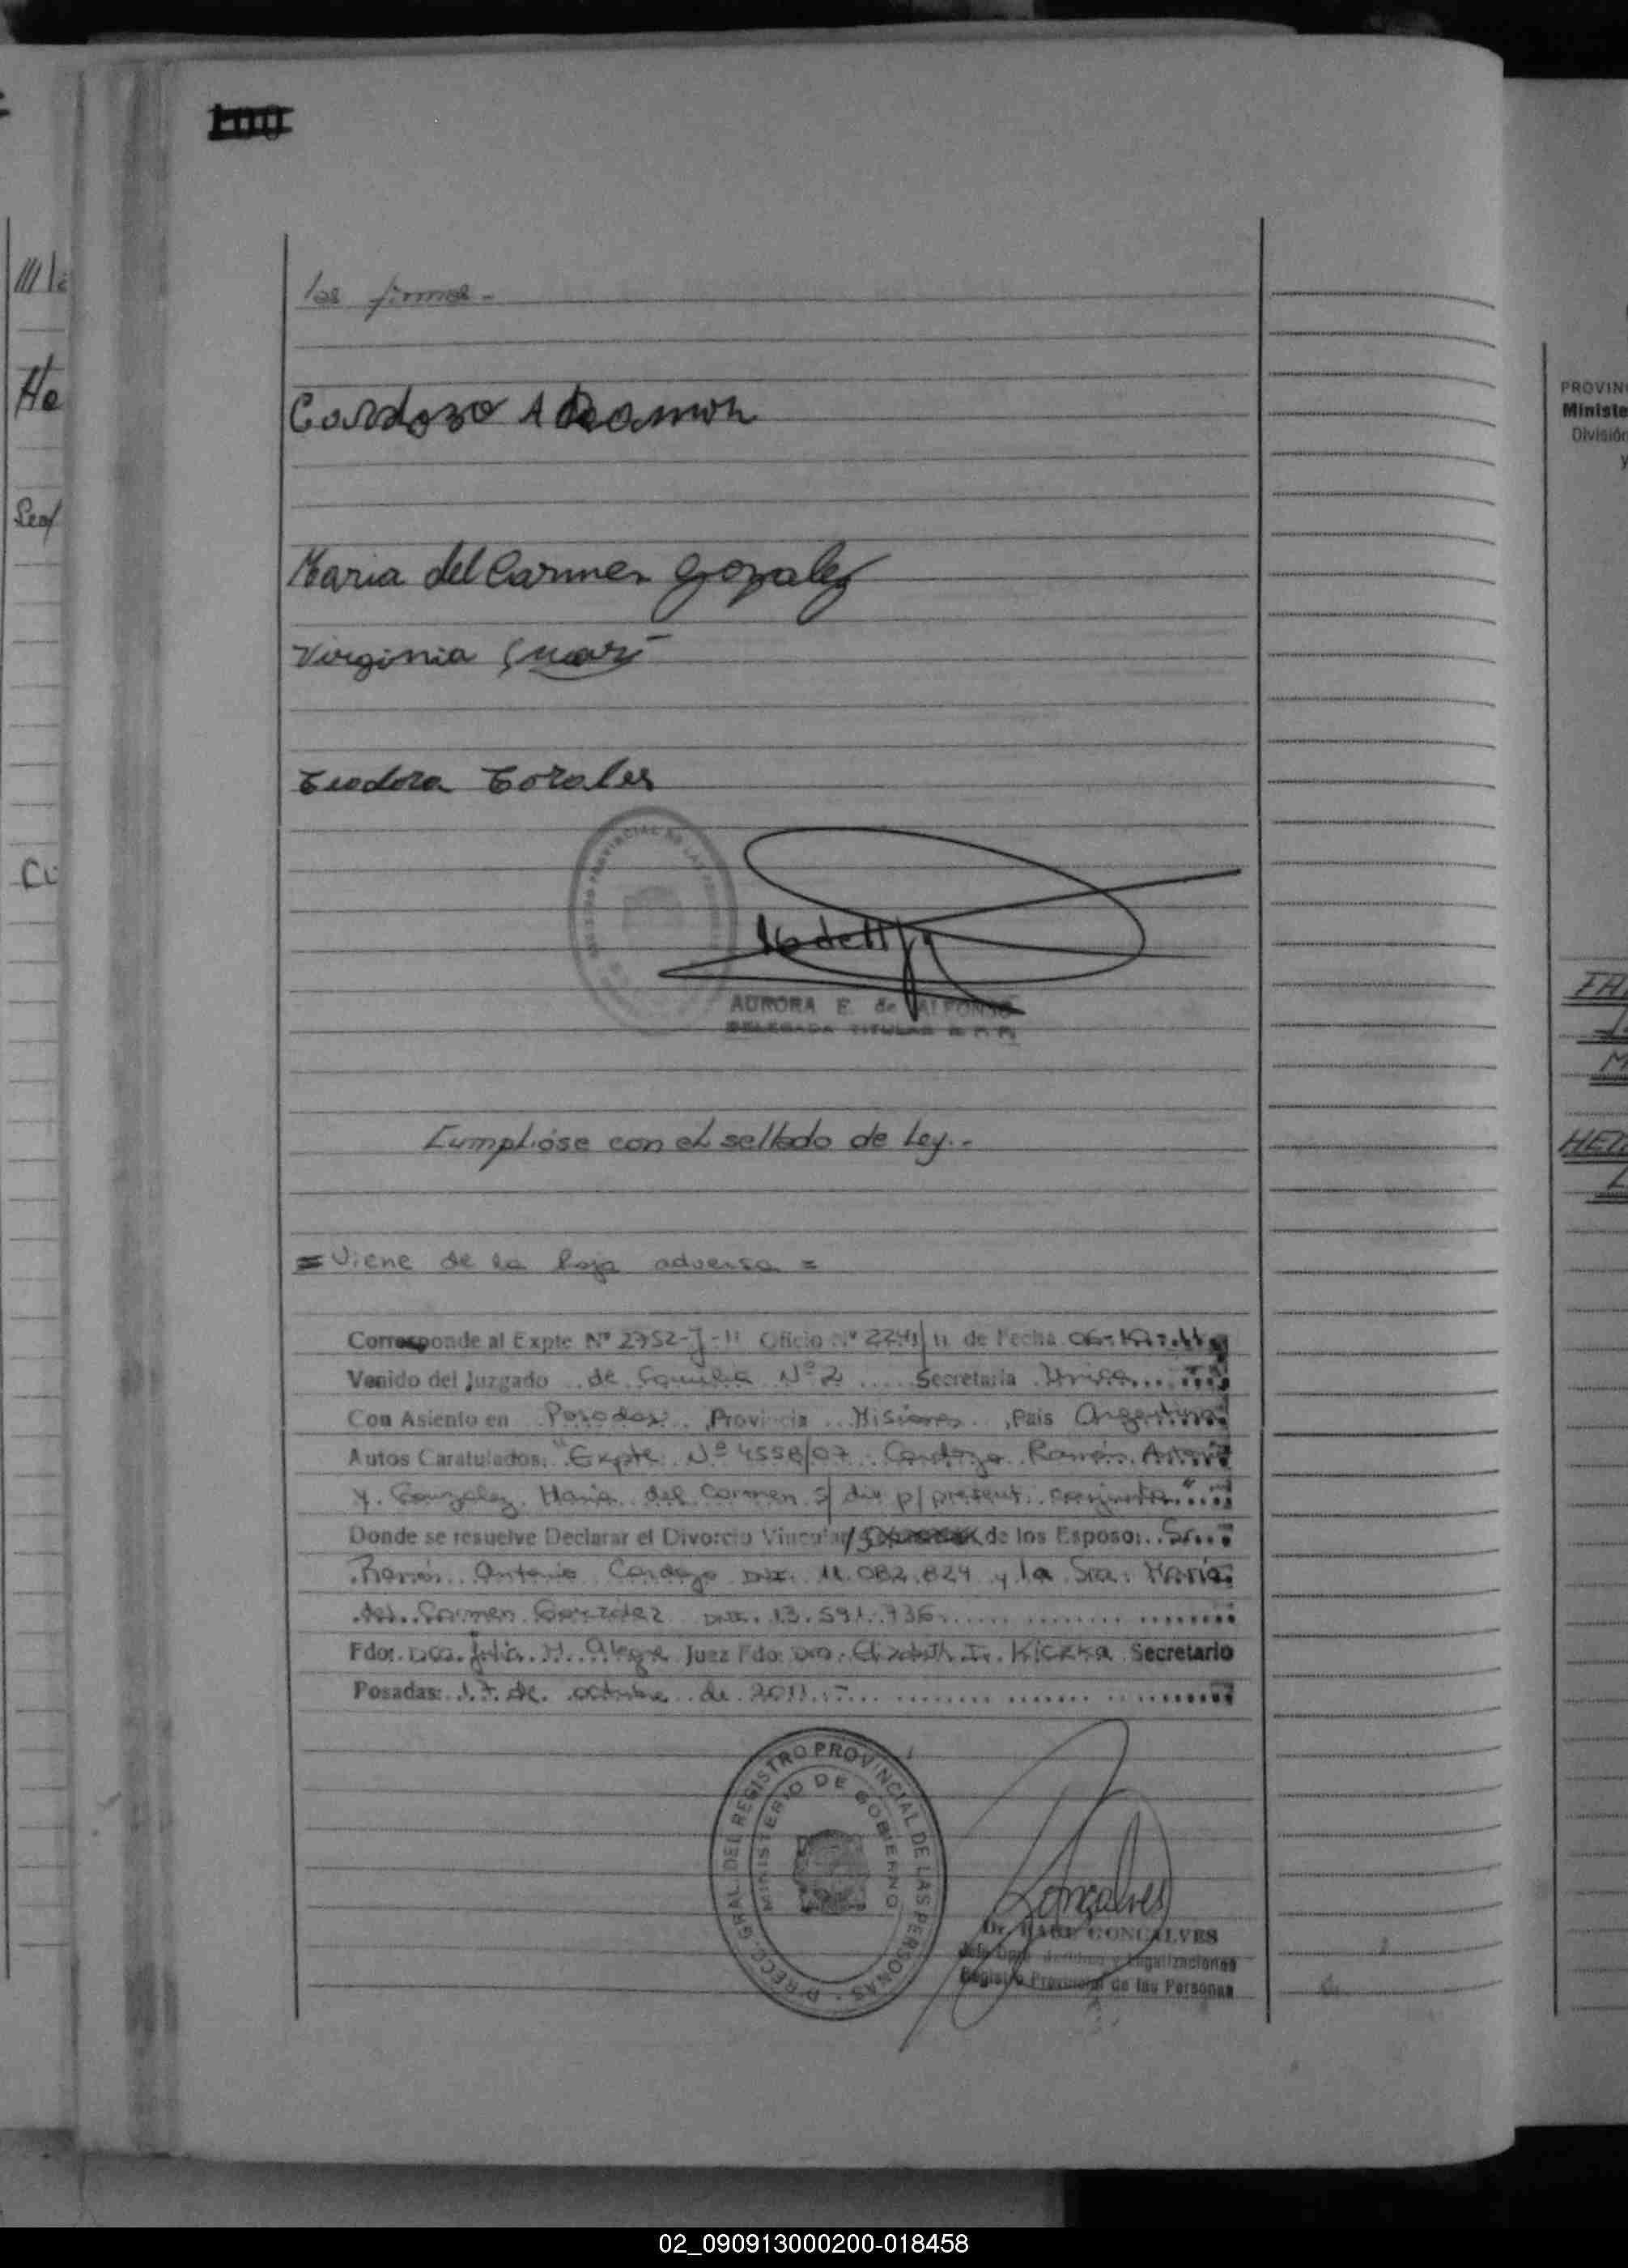 100
las firmas.-
Cardozo A Ramon
Maria del Carmen Gozalez
Virginia
Teodora Torales
AURORA E. de ALFONSO
DELEGADA TITULAR R. P. P.
Cumplióse con el sellado de Ley.-
=Viene de la hoja adversa=
Corresponde al Expte Nº 2752-J-11 Oficio Nº 2241/11 de Fecha 06-10-11
Venido del Juzgado de Familia Nº 2 Secretaria Unica
Con Asiento en Posadas, Provincia Misiones, Pais Argentina
Autos Caratulados: "Expte Nº 4558/07 Cardozo Ramón Antonio
y Gonzalez Maria del Carmen s/ div p/ present. conjunta"
Donde se resuelve Declarar el Divorcio Vincular/ de los Esposo: Sr.
Ramón Antonio Cardozo DNI. 11.082.824 y la Sra. María
del Carmen González DNI. 13.591.736
Fdo: Dra. Julia. M. Alegre Juez Fdo: Dra. Elizabeth I. Kiczka Secretario
Posadas: 17 de octubre de 2011.-
DIRECC. GRAL. DEL REGISTRO PROVINCIAL DE LAS PERSONAS
MINISTERIO DE GOBIERNO
Gonçalves
GONCALVES
Legalizaciones
Registro Provincial de las Personas
PROVIN
Ministe
División
y
02_090913000200-018458